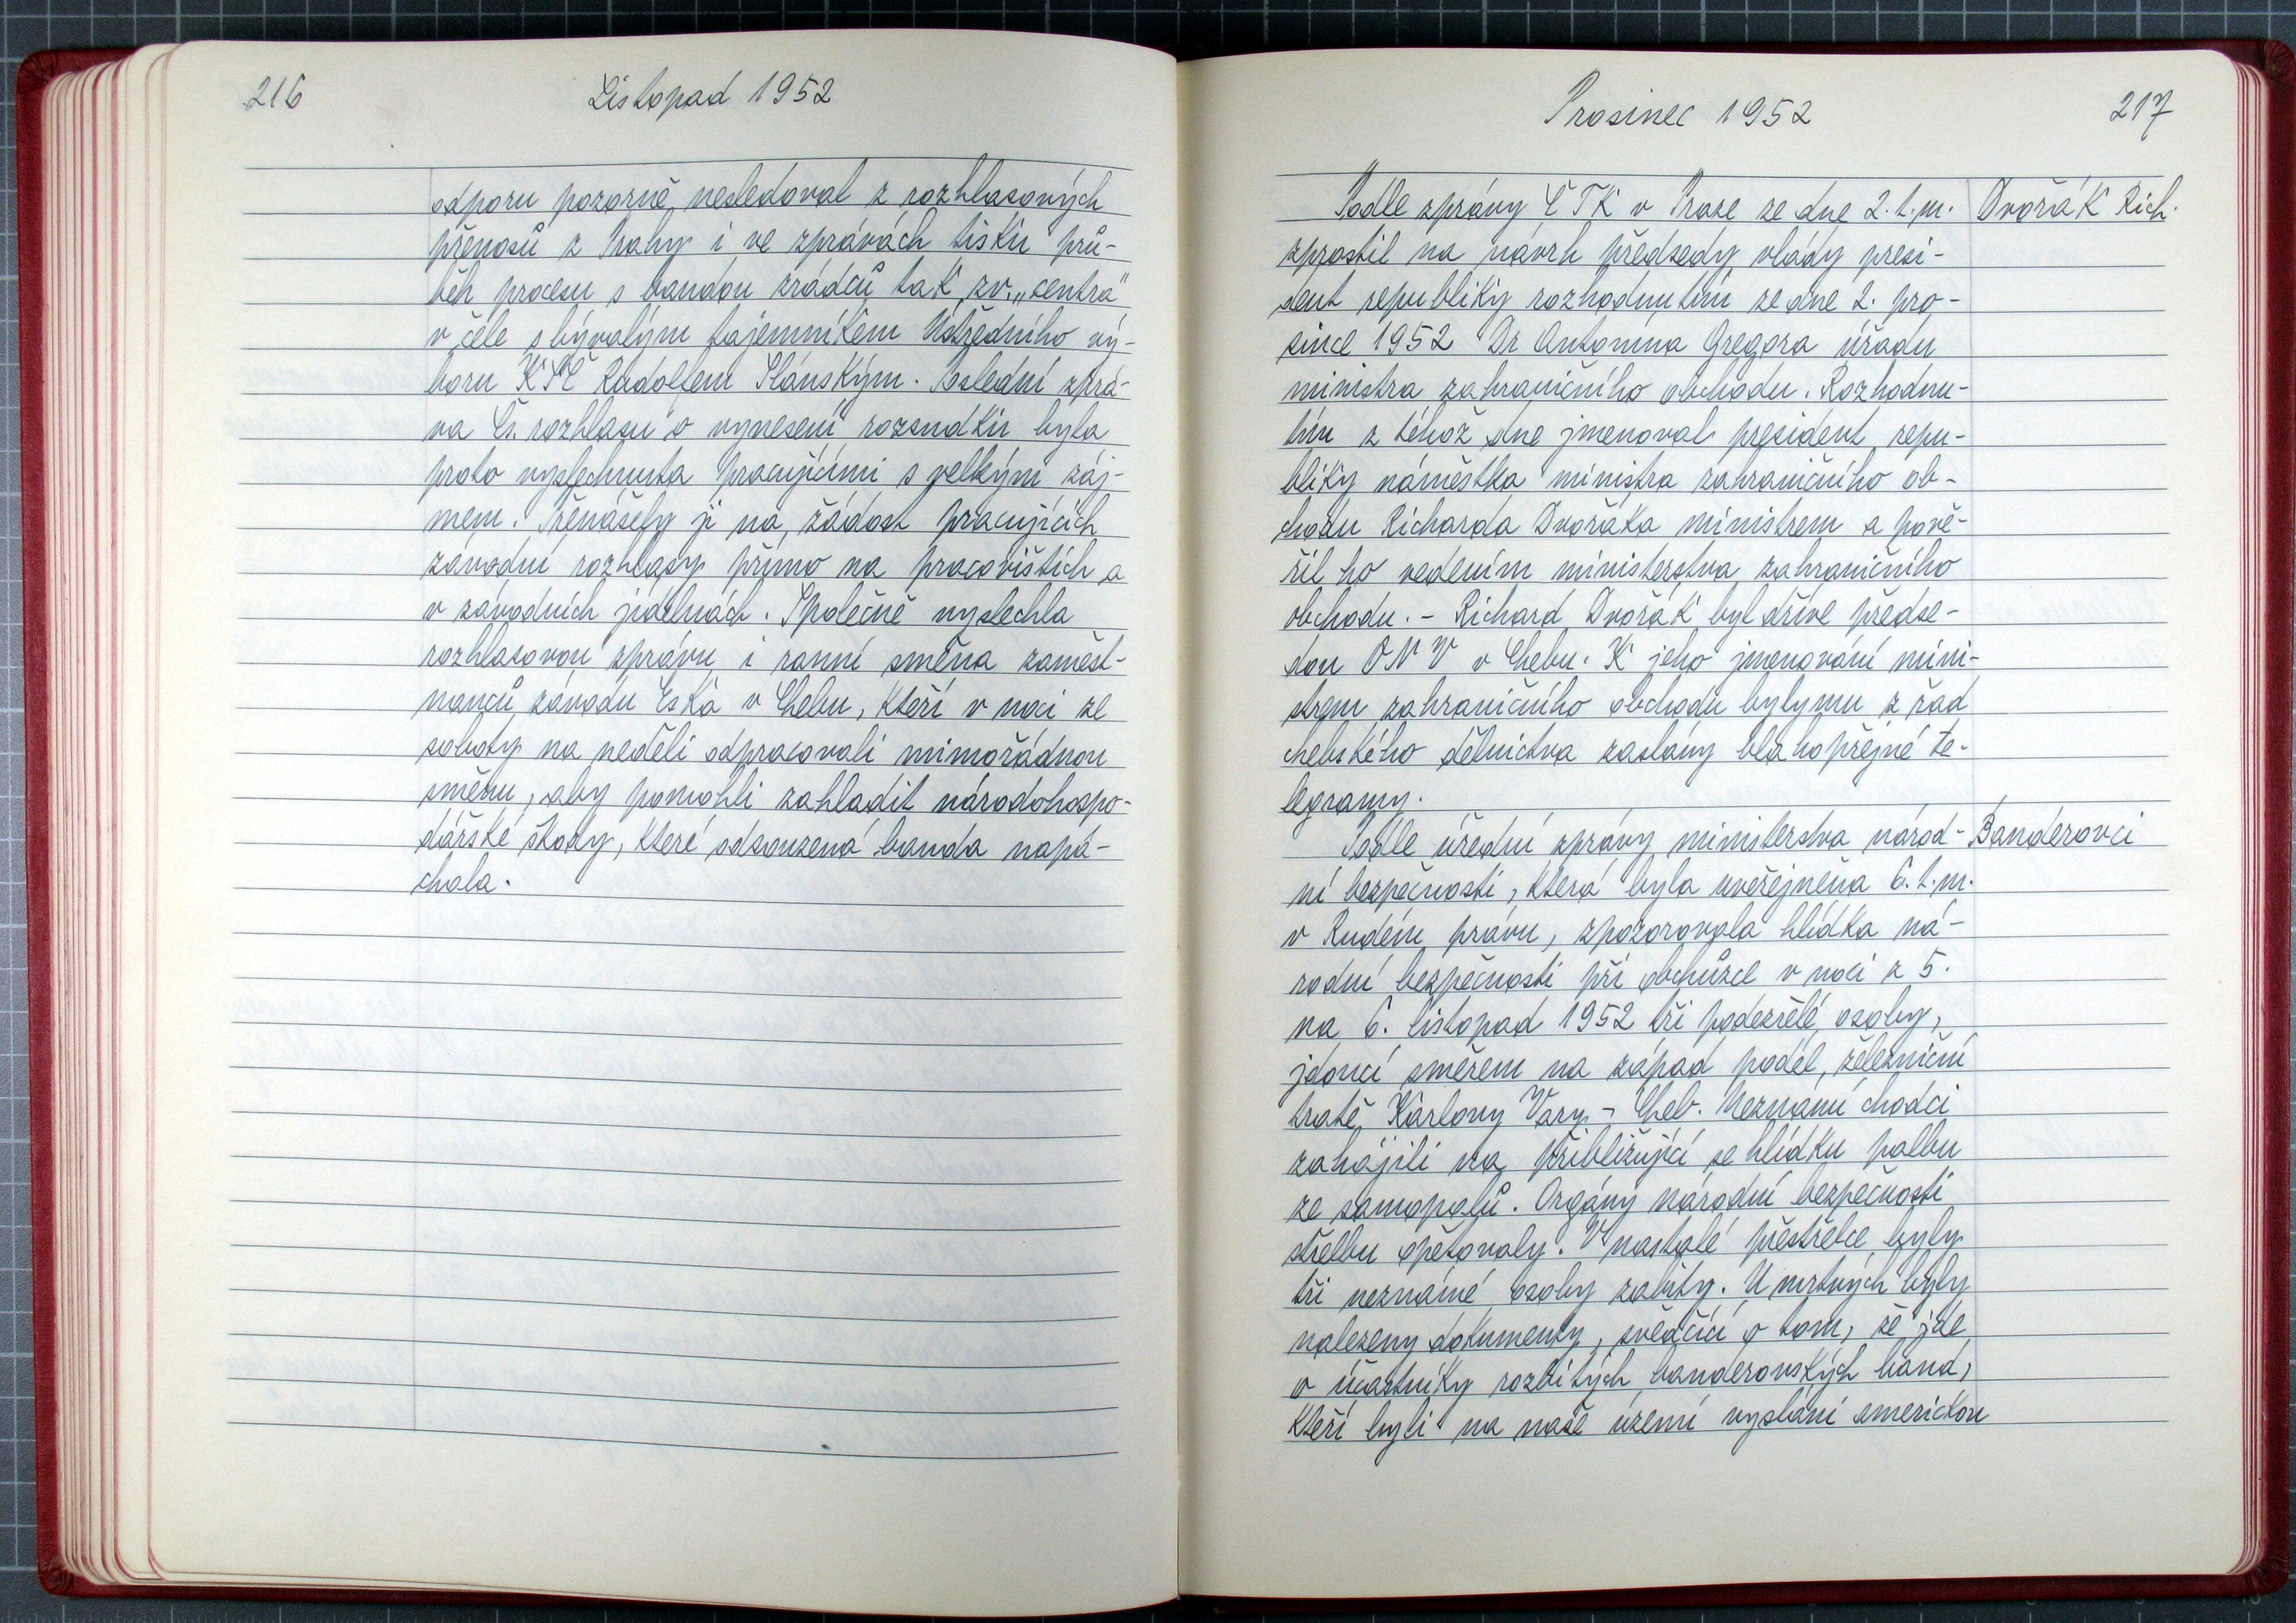 216
Listopad 1952
odporu pozorně nesledoval z rozhlasových
přenosů z Prahy i ve zprávách tisku prů-
běh procesu s bandou zrádců tak zv. „centra"
v čele s bývalým tajemníkem Ústředního vý-
boru KSČ Rudolfem Slánským. Poslední zprá-
va Čs. rozhlasu o vynesení rozsudku byla
proto vyslechnuta pracujícími s velkým záj-
mem. Přenášely ji na žádost pracujících
závodní rozhlasy přímo na pracovištích a
v závodních jídelnách. Společně vyslechla
rozhlasovou zprávu i ranní směna zaměst-
nanců závodu Eska v Chebu, kteří v noci ze
soboty na neděli odpracovali mimořádnou
směnu, aby pomohli zahladit národohospo-
dářské škody, které odsouzená banda napá-
chala.
Prosinec 1952
217
Podle zprávy ČTK v Praze ze dne 2. t. m.
Dvořák Rich.
zprostil na návrh předsedy vlády presi-
dent republiky rozhodnutím ze dne 2. pro-
since 1952 Dr Antonína Gregora úřadu
ministra zahraničního obchodu. Rozhodnu-
tím z téhož dne jmenoval president repu-
bliky náměstka ministra zahraničního ob-
chodu Richarda Dvořáka ministrem a pově-
řil ho vedením ministerstva zahraničního
obchodu. - Richard Dvořák byl dříve předse-
dou ONV v Chebu. K jeho jmenování mini-
strem zahraničního obchodu byly mu z řad
chebského dělnictva zaslány blahopřejné te-
legramy.
Podle úřední zprávy ministerstva národ-
Banderovci
ní bezpečnosti, která byla uveřejněna 6. t. m.
v Rudém právu, zpozorovala hlídka ná-
rodní bezpečnosti při obchůzce v noci z 5.
na 6. listopad 1952 tři podezřelé osoby,
jdoucí směrem na západ podél železniční
tratě Karlovy Vary - Cheb. Neznámí chodci
zahájili na přibližující se hlídku palbu
ze samopalů. Orgány národní bezpečnosti
střelbu opětovaly. V nastalé přestřelce byly
tři neznámé osoby zabity. U mrtvých byly
nalezeny dokumenty, svědčící o tom, že jde
o účastníky rozbitých banderovských band,
kteří byli na naše území vysláni americkou